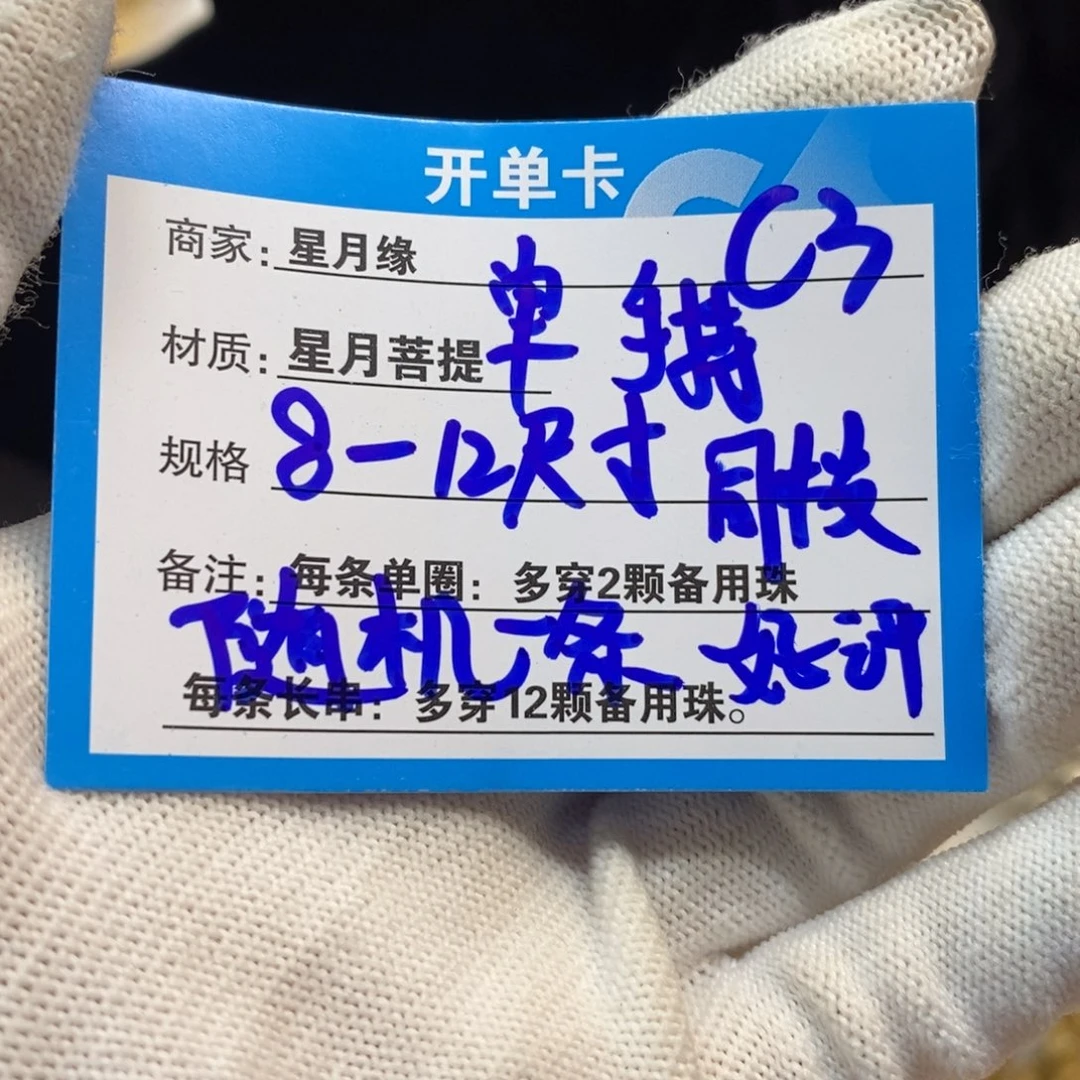 开单卡
C3
商家：星月缘
单
材质：星月菩提
规格 8-12尺寸
备注：每条单圈：多穿2颗备用珠
随机一条 好评
每条长串：多穿12颗备用珠。